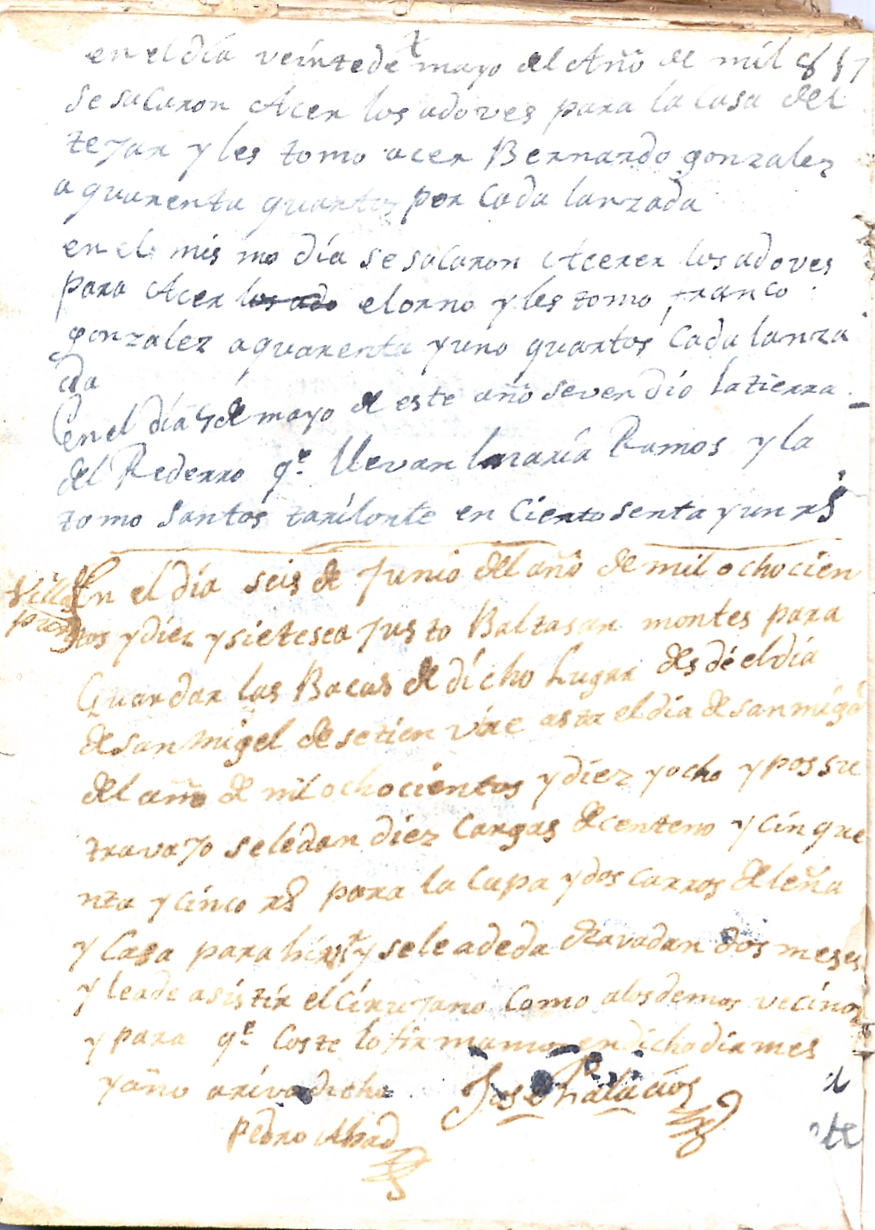 en el día veinte de mayo del Año de mil 817
se sacaron Acer los adoves para la Casa del
tejar y les tomo acer Bernardo gonzalez
a quarenta quartos por Cada lanzada
en el mis mo día se sacaron Acerer los adoves
para Acer los ado el orno y les tomo franco
gonzalez a quarenta y uno quartos Cada lanza
da
en el día 7 de mayo de este año se vendio la tierra
del Rederro qe. llevan maría Ramos y la
tomo Santos tarilonte en Ciento senta y un rs
En el día seis de Junio del año de mil ochocien
Villa
tos y diez y siete se a Justo Baltasar montes para
Guardar las Bacas de dícho Lugar desde el día
de san migel de setienvre asta el dia de san migl
del año de mil ochocientos y díez y ocho y por su
travajo se le dan díez Cargas de centeno y cinque
nta y cínco rs para la Capa y dos carros de leña
y Casa para y se le a de da dos meses
y le a de asistír el Cirujano Como a los demas vecinos
y para qe Coste lo firmamos en dicho dia mes
y año arívadicho
Jose Palacíos
Pedro Abad
te